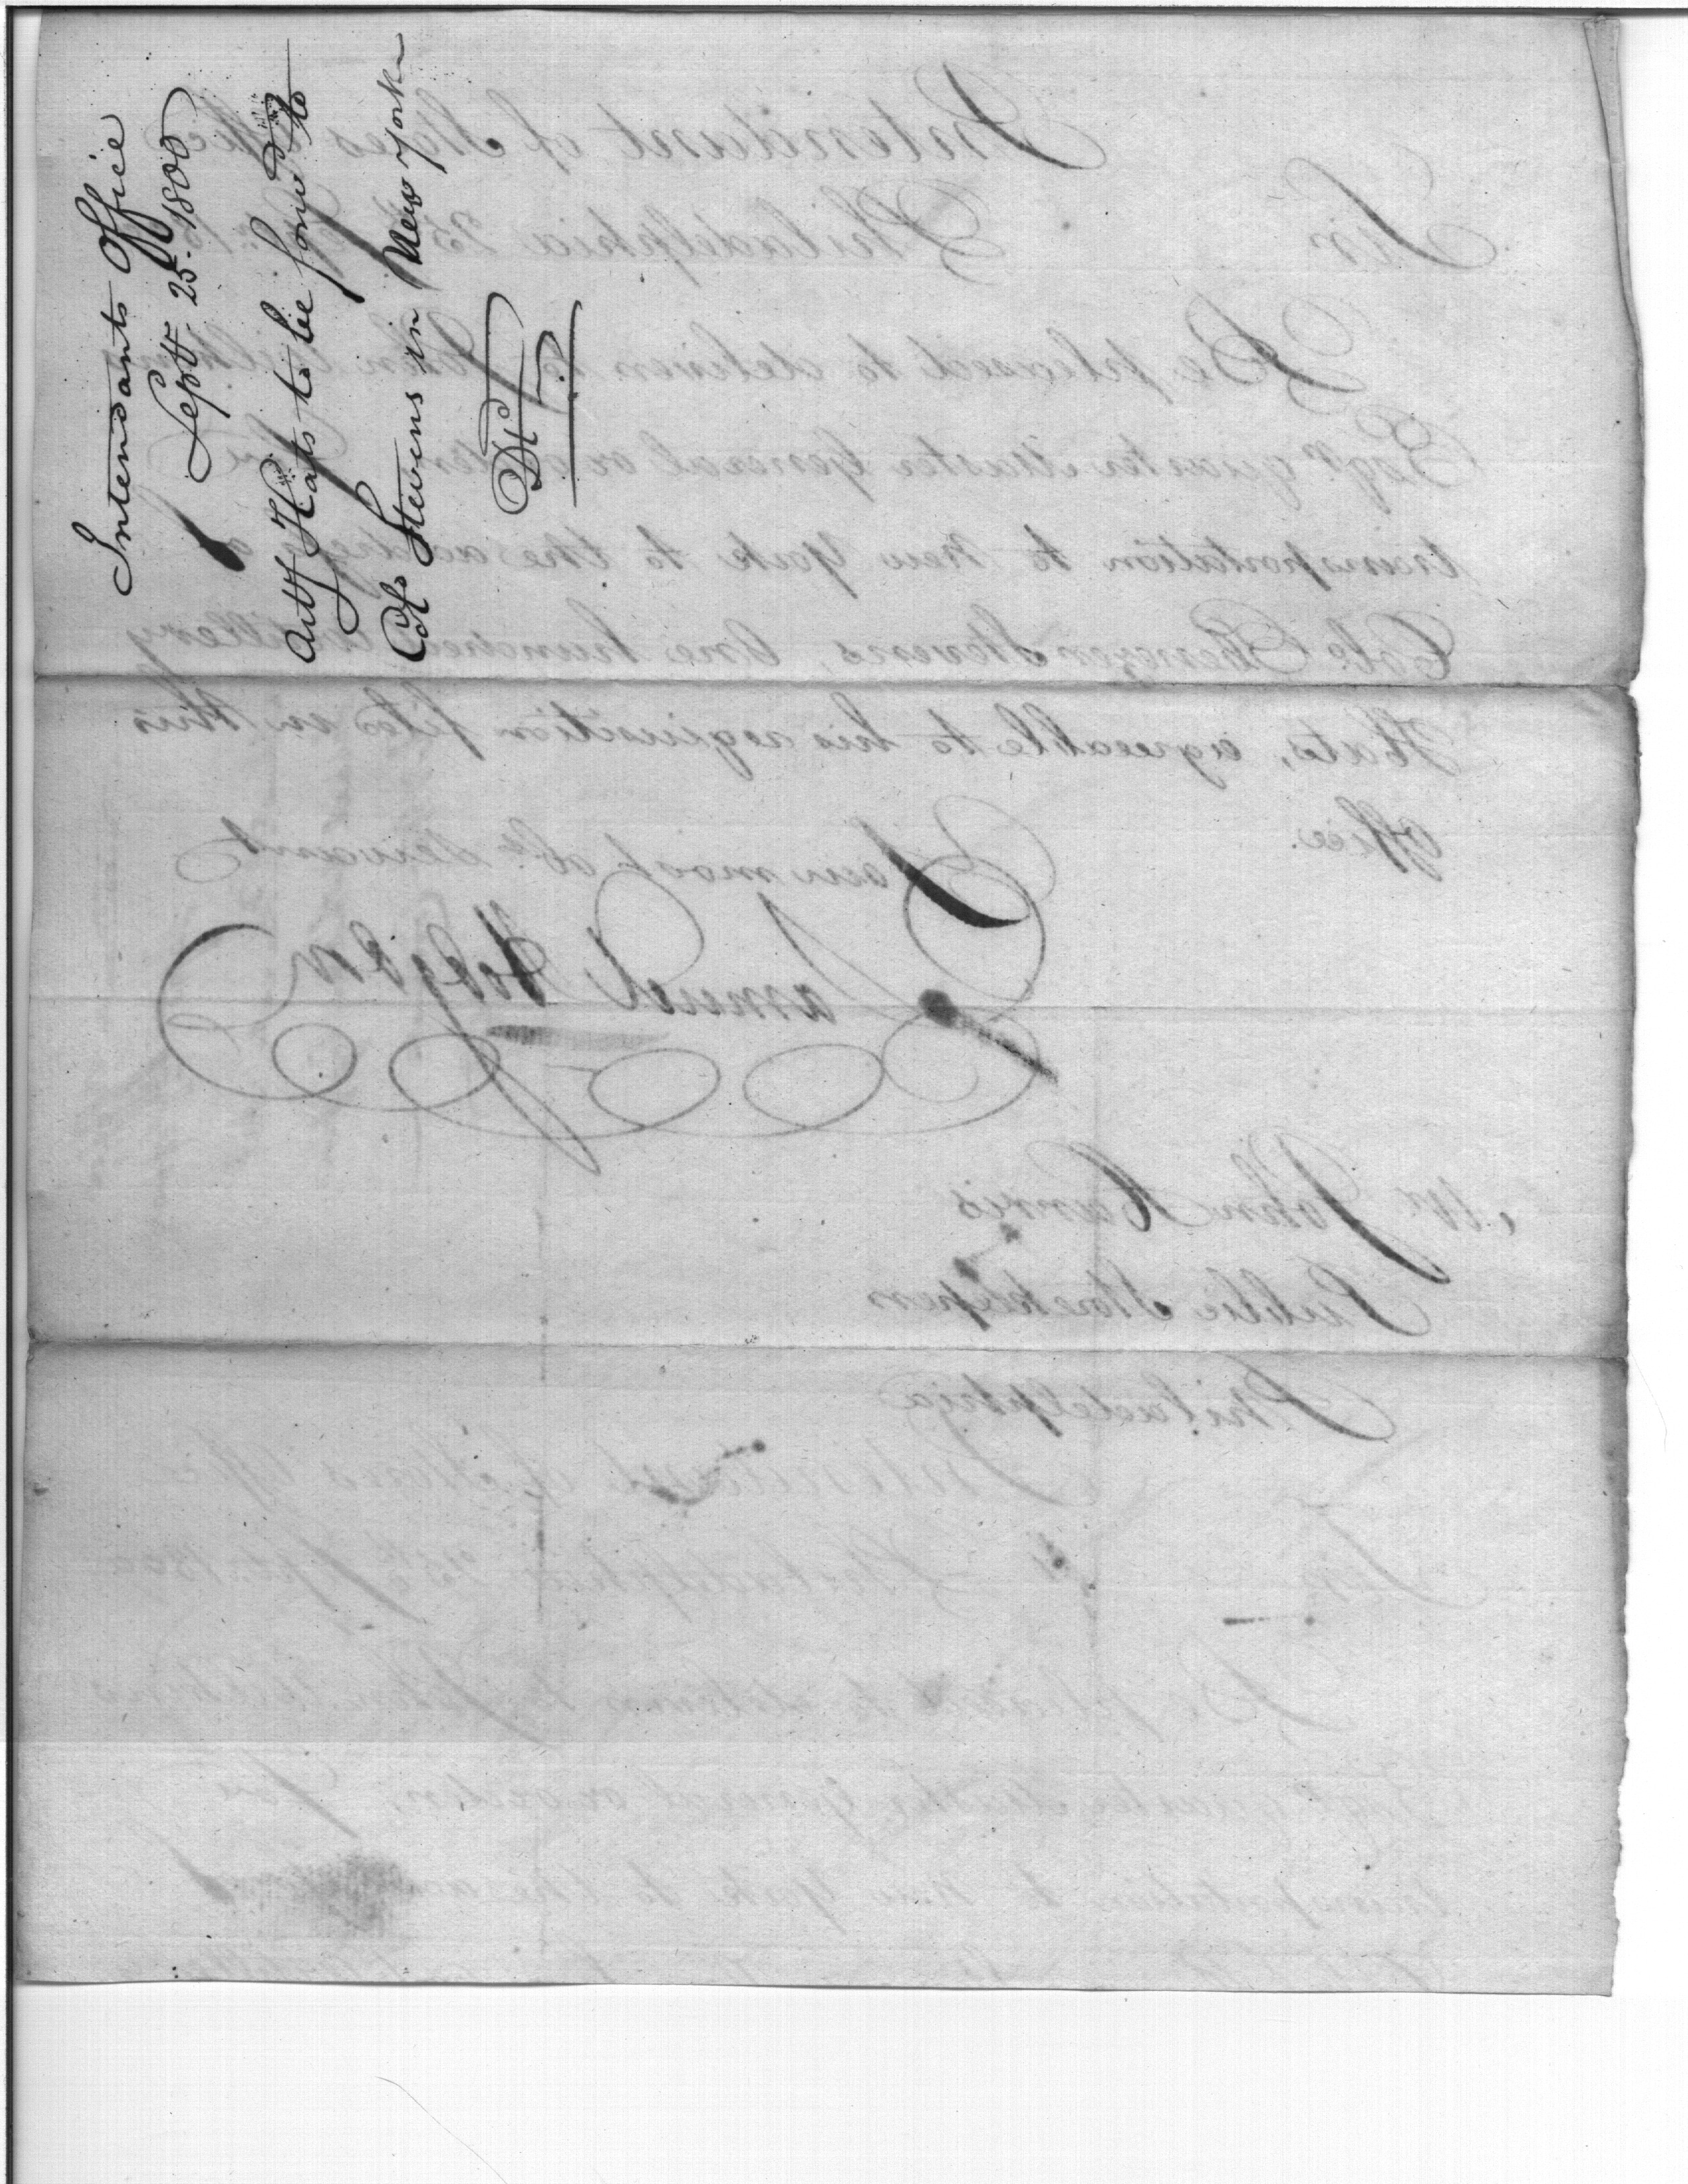 Intendants Office
Septr. 25. 1800
Arty Hats to be forwd. to
Colo Stevens in New York
Intendant of Stores Office
Sir Philadelphia 25th
Be pleased to deliver to John Wilkins
Esqr. Quarter Master General or order, for
transportation to New York to the address of
Colo. Ebenezer Stevens, One hundred Artillery
Hats, agreeable to his requisition filed in this
Office.
Your most obt. servant
Samuel Hodgdon
Mr. John Harris
Public Storekeeper
Philadelphia